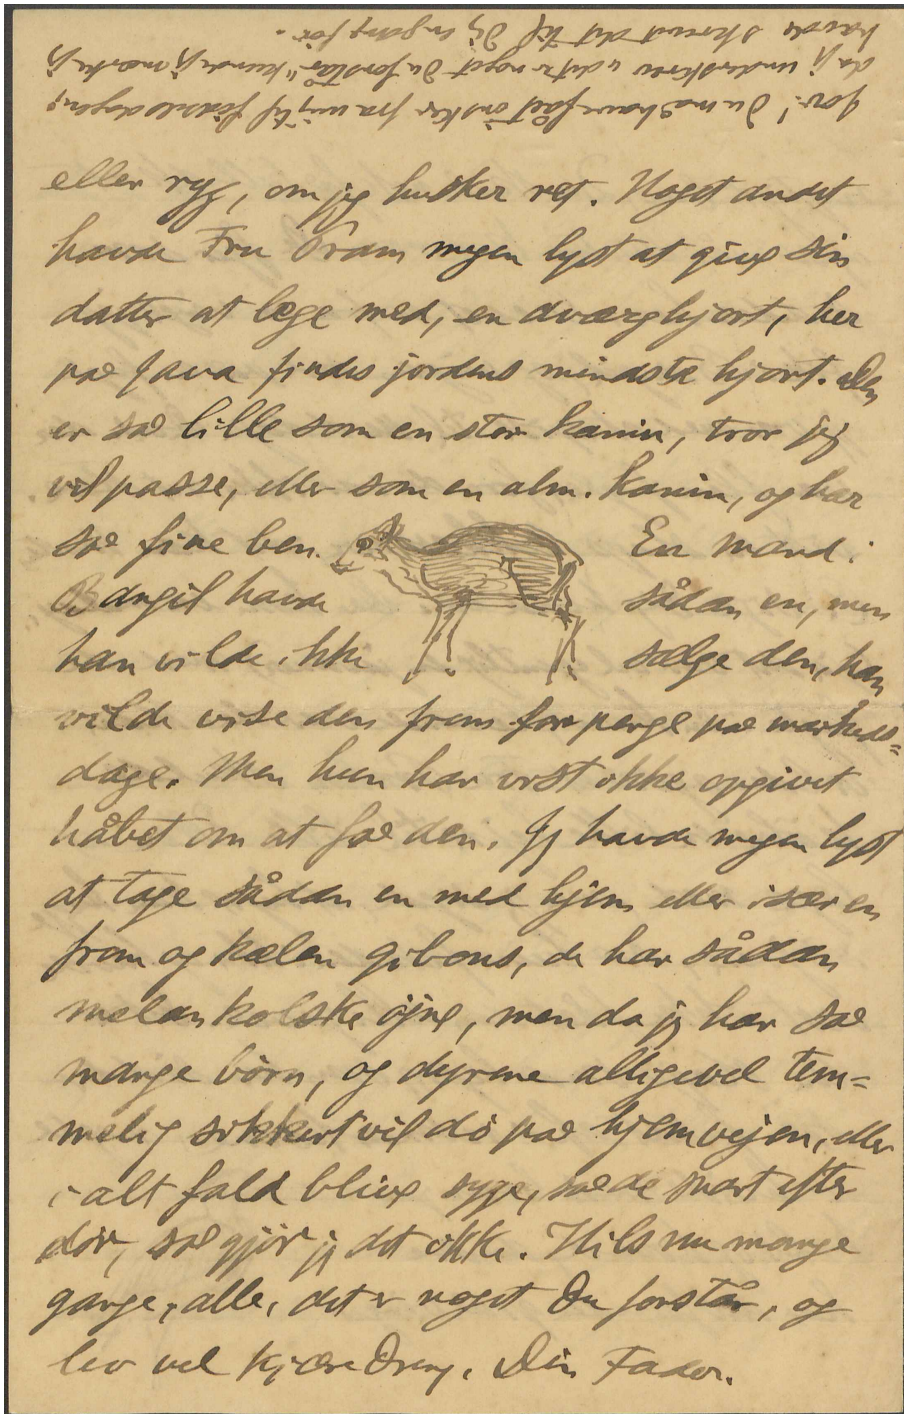 eller ryg, om jeg husker ret. Noget andet
havde Fru Bram megen lyst at give sin
datter at lege med, en dværghjort, her
på Java findes jordens mindste hjort. Den
er så lille som en stor kanin, tror jeg
vil passe, eller som en alm. kanin, og har
så fine ben. En mand i
Bangil havde sådan en, men
han vilde ikke sælge den, han
vilde vise den frem for penge på markeds=
dage. Men hun har vist ikke opgivet
håbet om at få den. Jeg havde megen lyst
at tage sådan en med hjem eller især en
from og kælen gibons, de har sådan
melankolske øjne, men da jeg har så
mange børn, og dyrene alligevel tem=
melig sikkert vil dø på hjemvejen, eller
i alt fald blive syge, så de snart efter
dør, så gjør jeg det ikke. Hils nu mange
gange, alle, det er noget Du forstår, og
lev vel kjære Dreng. Din Fader.
Du må have fået ønsker fra mig til fødselsdagen;
da jeg underskrev "det er noget Du forstår" kunde jeg mærke jeg
havde skrevet det til Dig engang før.